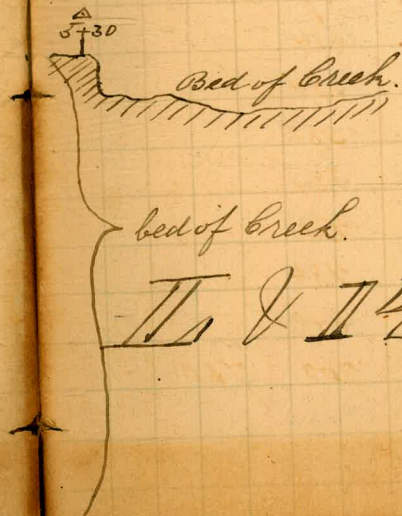 5+30
Bed of Creek.
bed of Creek.
II